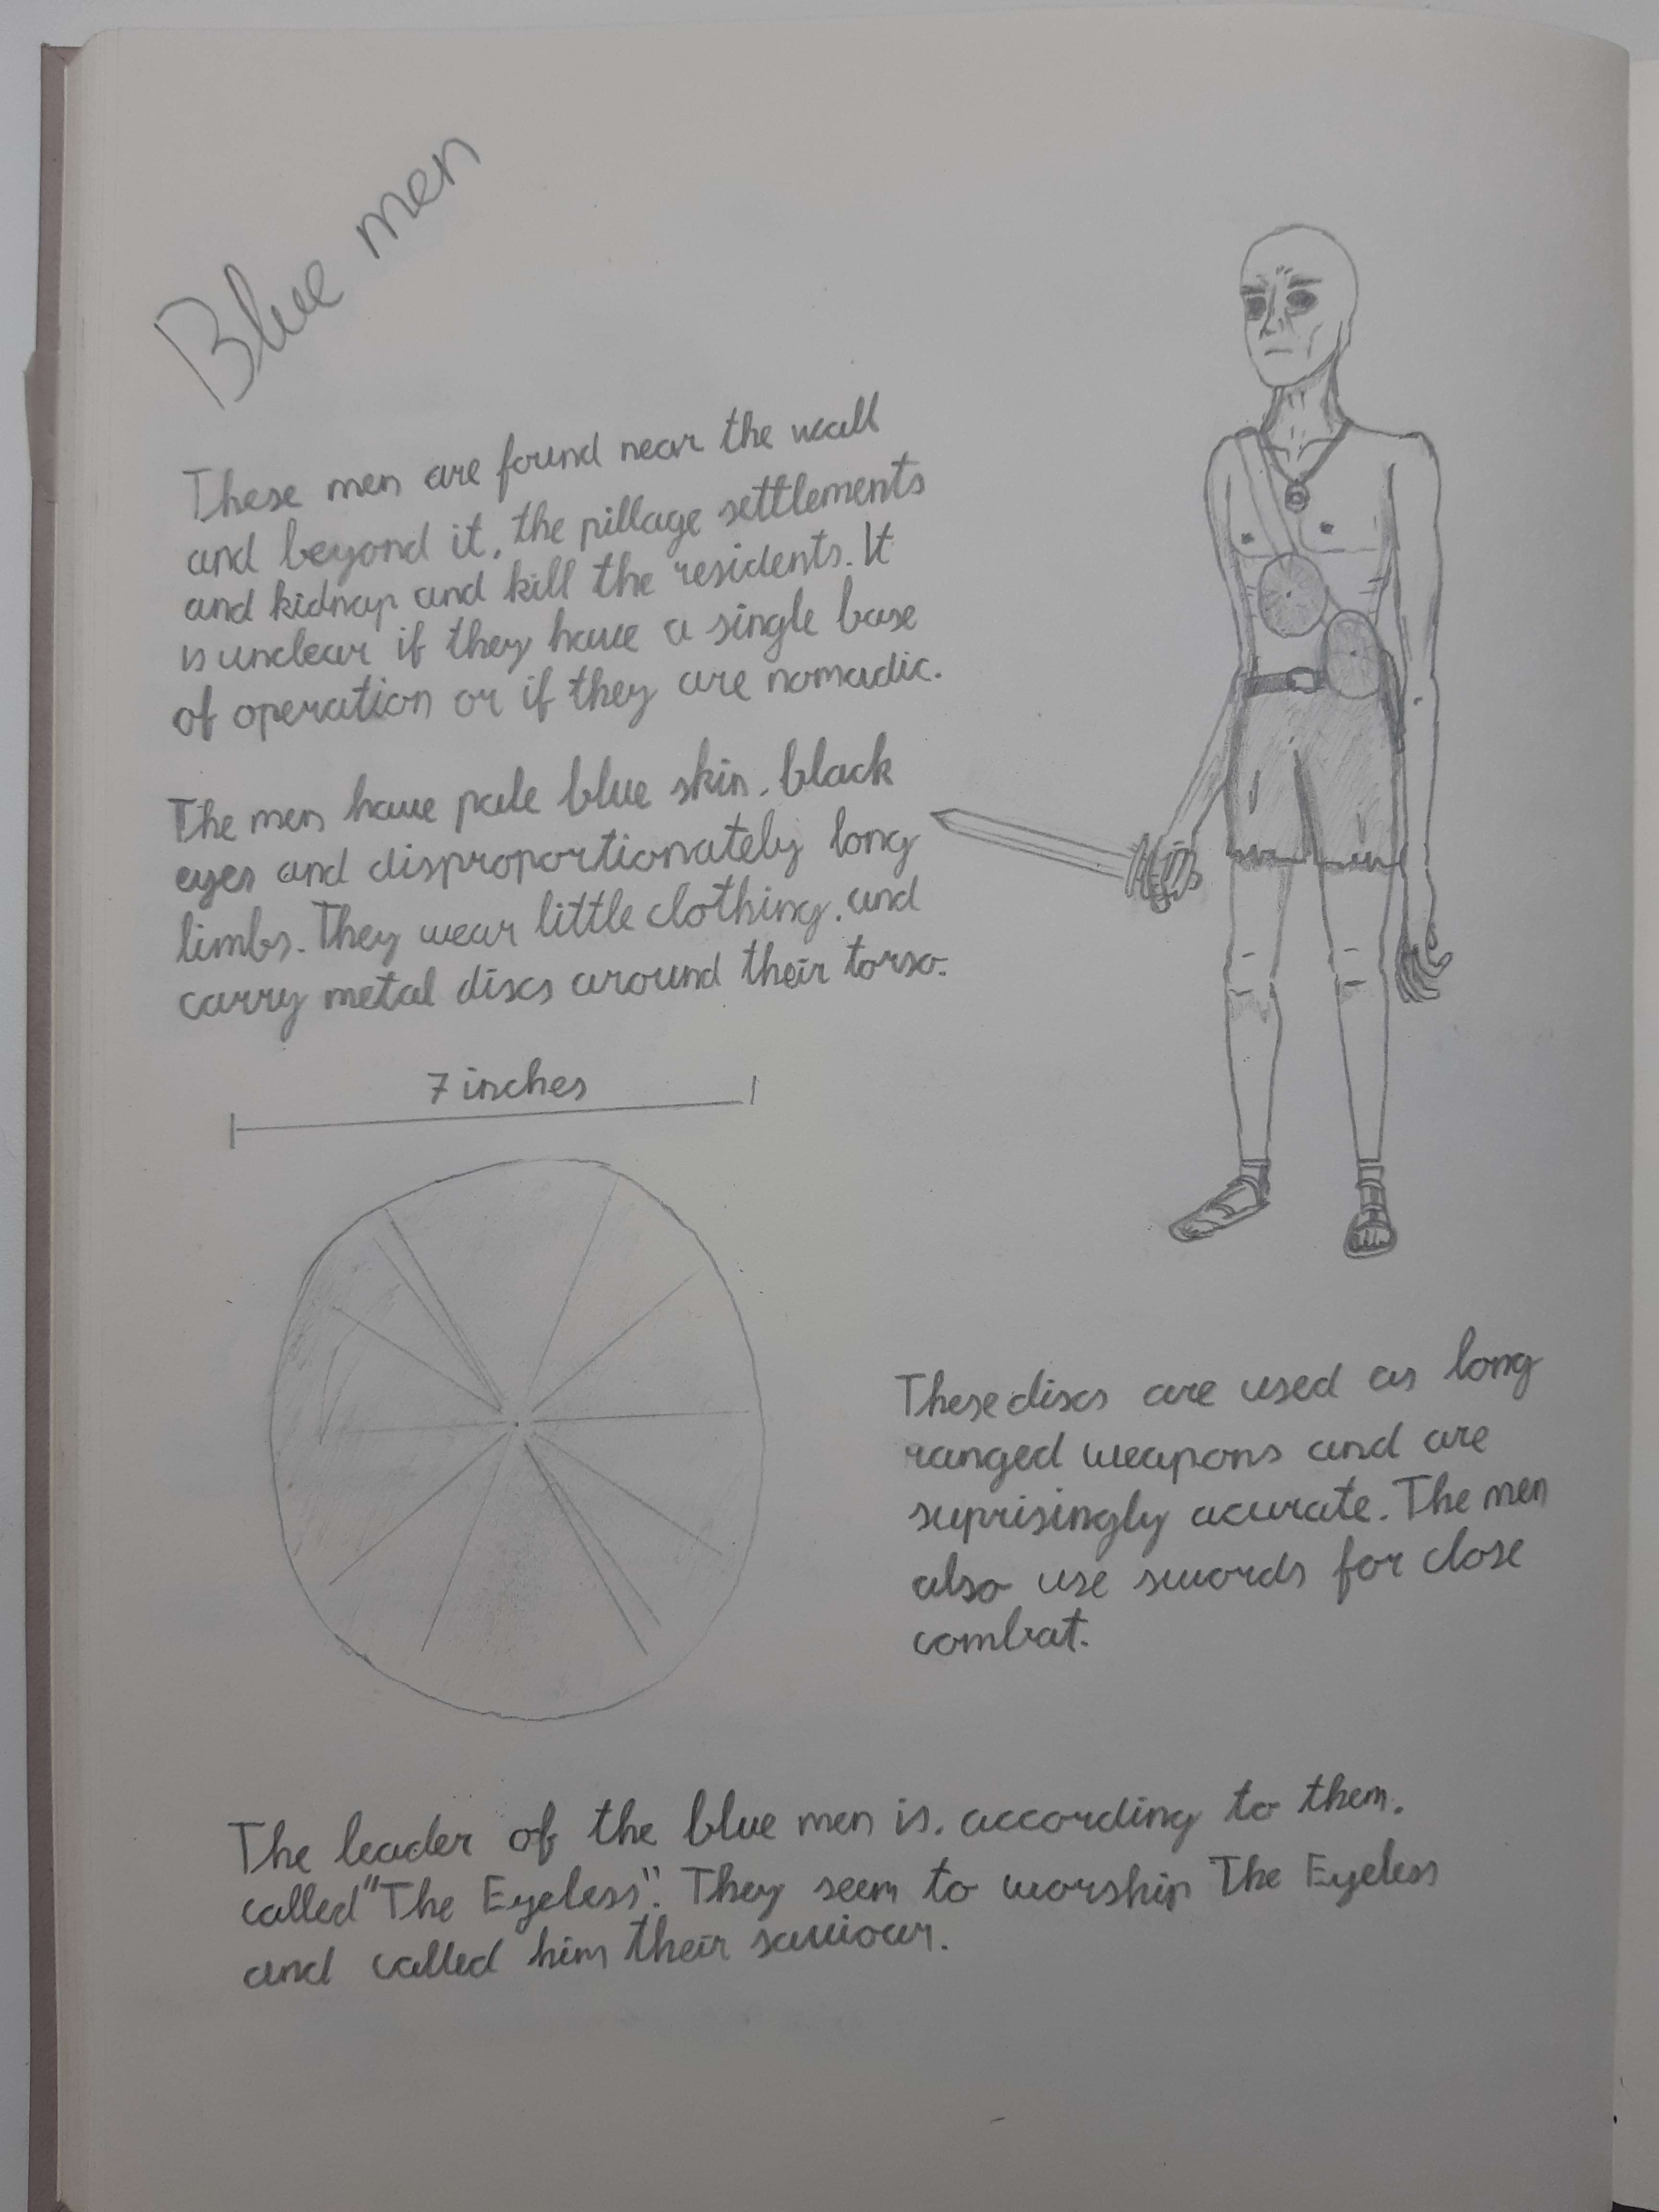 Blue men
These men are found near the wall
and beyond it, the pillage settlements
and kidnap and kill the residents. It
is unclear if they have a single base
of operation or if they are nomadic.
The men have pale blue skin, black
eyes and disproportionately long
limbs. They wear little clothing, and
carry metal discs around their torso.
7 inches
These discs are used as long
ranged weapons and are
suprisingly acurate. The men
also use swords for close
combat.
The leader of the blue men is, according to them,
called "The Eyeless". They seem to worship The Eyeless
and called him their saviour.